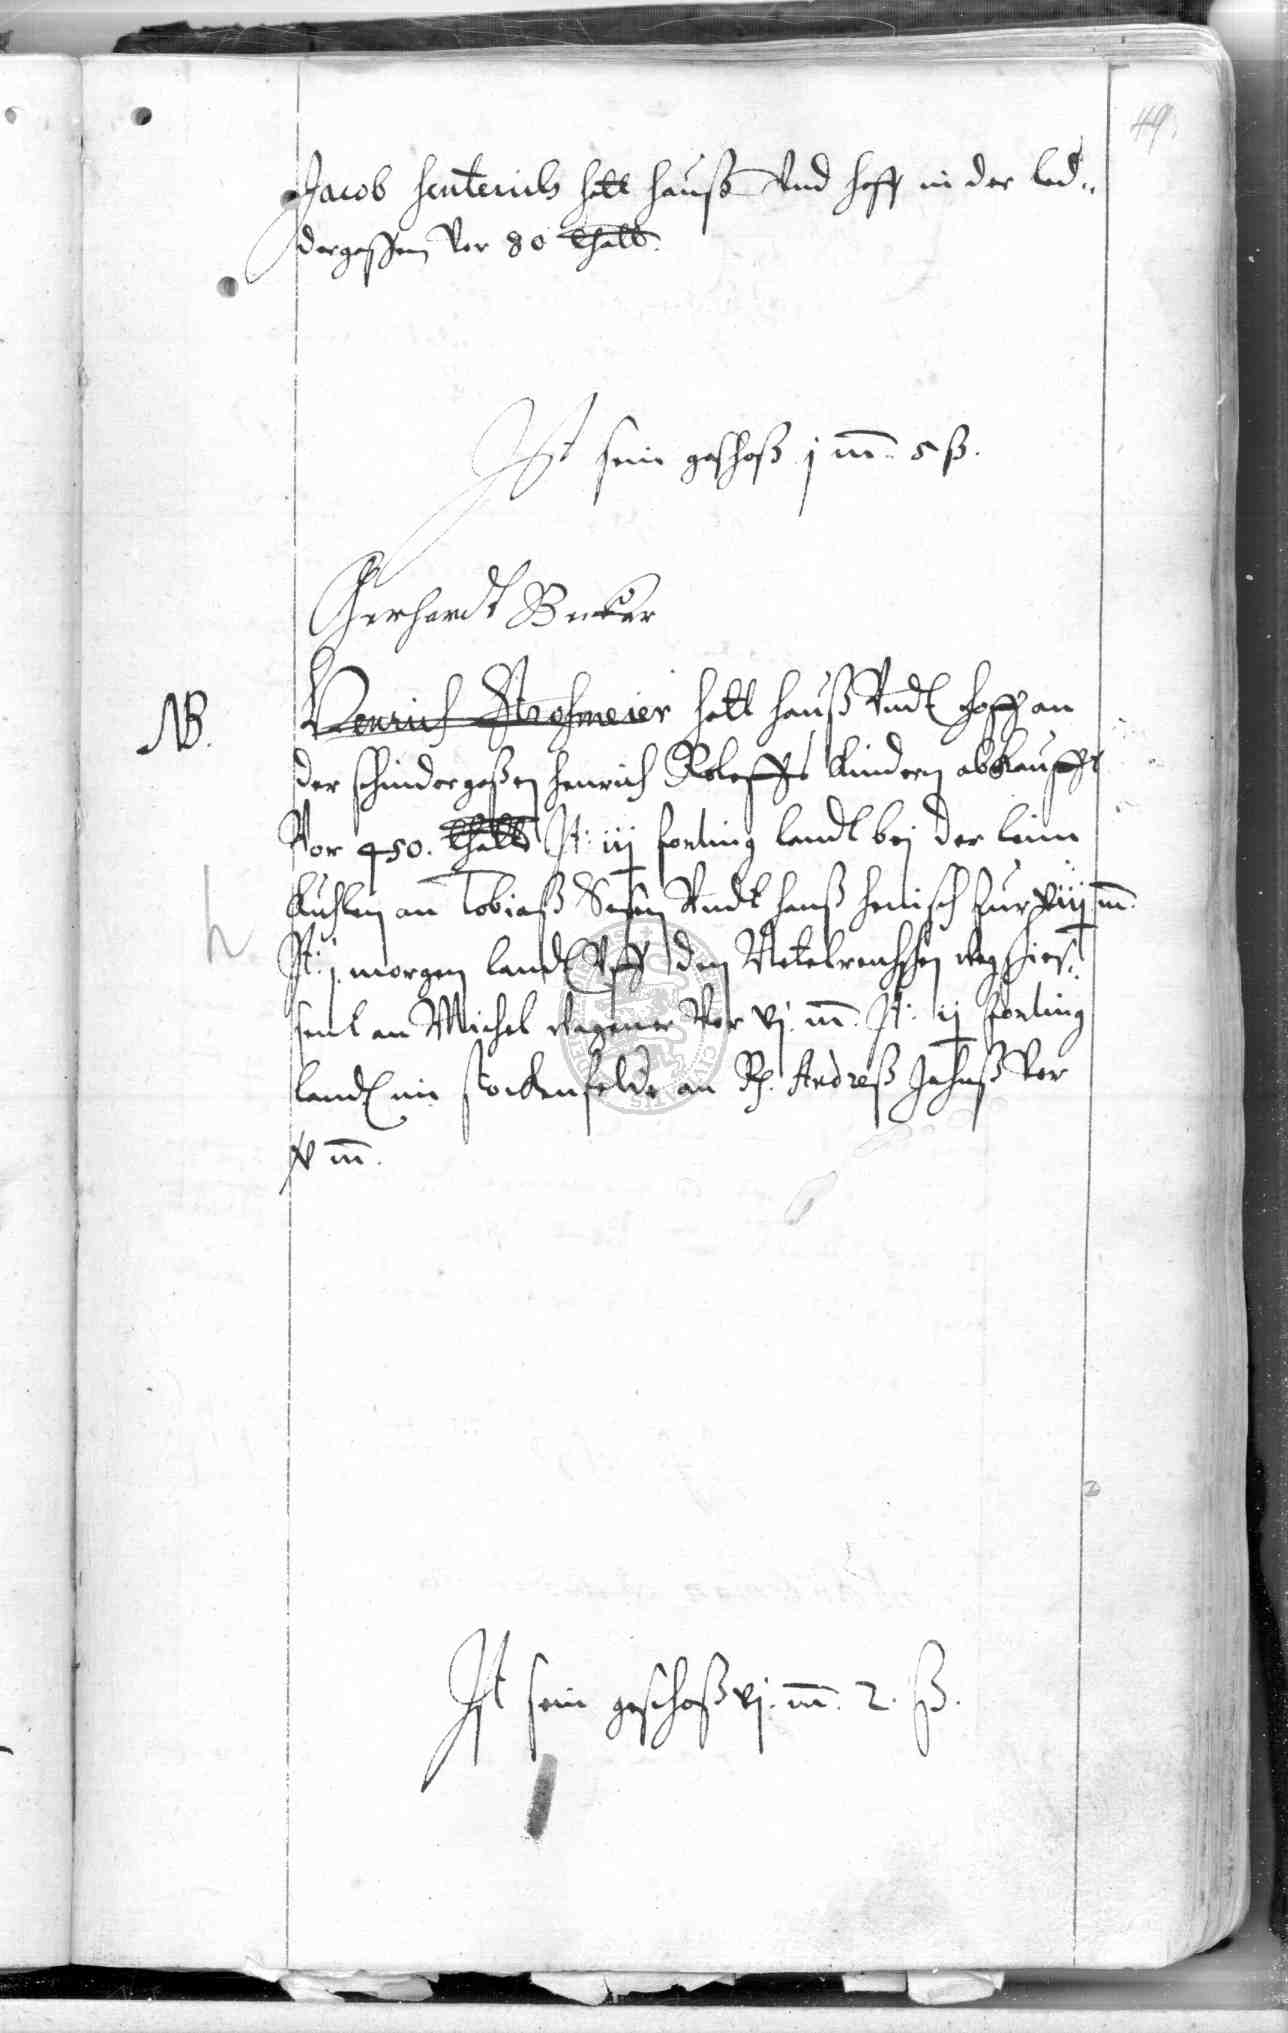 49.
Jacob Henterich hatt hauß Vnd hoff in der led„
dergassen Vor 80 thall.
Jst sein geschoß j m. 5 ß.
Gerhardt Becker
NB.
Henrich Strohmeier hatt hauß Vndt hoff an
der schindergaßen henrich Roleffs kindern abkaufft
Vor 450. thall Jt: iij forling landt bei der leim
kuhlen an Tobiaß Vndt hanß henisch Zur viiij m.
h
Jt: j. morgen landt Vff den weg schies„
sent an Michel Wagener Vor vj. m. Jt: ij forling
landt im stockenfelde an Andreß Jahnß Vor
m.
Jst sein geschoß vj. m. 2. ß.